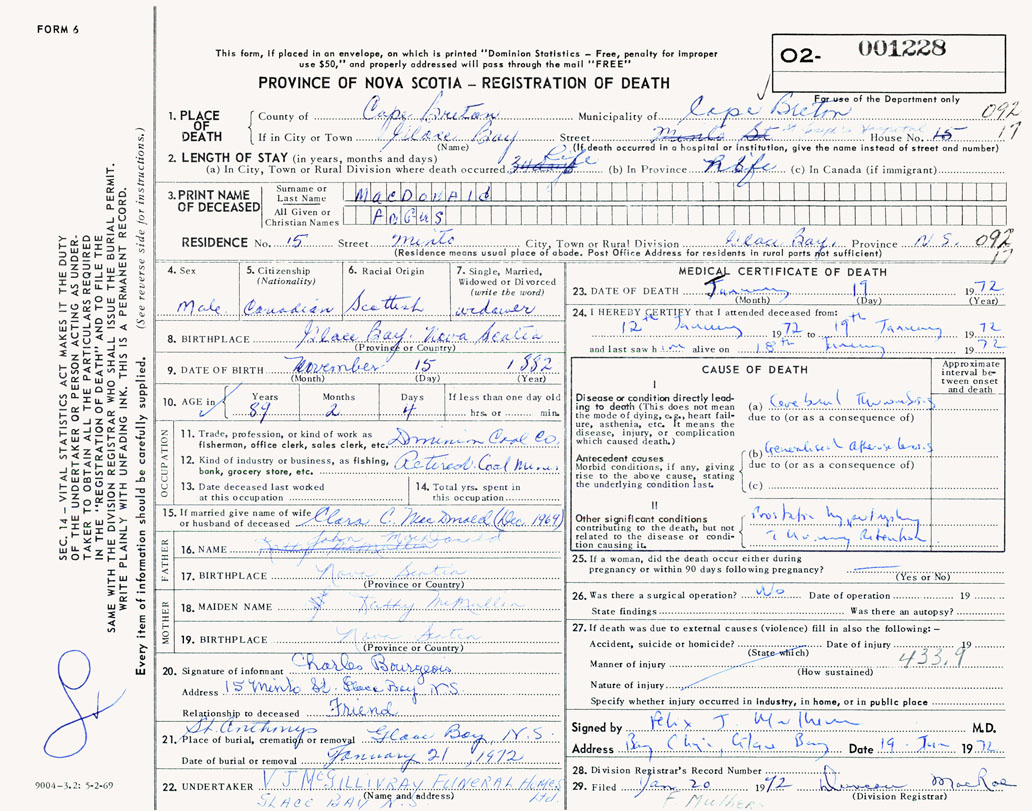 FORM 6
O2- 001228
This form, if placed in an envelope, on which is printed "Dominion Statistics – Free, penalty for improper
use $50," and properly addressed will pass through the mail "FREE"
PROVINCE OF NOVA SCOTIA – REGISTRATION OF DEATH
For use of the Department only
1. PLACE OF DEATH
County of Cape Breton Municipality of Cape Breton 092
If in City or Town Glace Bay Street Minto St House No. 15 17
(Name) (If death occurred in a hospital or institution, give the name instead of street and number)
2. LENGTH OF STAY (in years, months and days)
(a) In City, Town or Rural Division where death occurred Life (b) In Province Life (c) In Canada (if immigrant)
3. PRINT NAME OF DECEASED
Surname or Last Name MacDonald
All Given or Christian Names Angus
RESIDENCE No. 15 Street Minto City, Town or Rural Division Glace Bay. Province N.S. 092
(Residence means usual place of abode. Post Office Address for residents in rural parts not sufficient) 17
4. Sex Male
5. Citizenship (Nationality) Canadian
6. Racial Origin Scottish
7. Single, Married, Widowed or Divorced (write the word) widower
8. BIRTHPLACE Glace Bay. Nova Scotia
(Province or Country)
9. DATE OF BIRTH November 15 1882
(Month) (Day) (Year)
10. AGE in Years 89 Months 2 Days 4 If less than one day old hrs. or min.
OCCUPATION
11. Trade, profession, or kind of work as fisherman, office clerk, sales clerk, etc. Dominion Coal Co.
12. Kind of industry or business, as fishing, bank, grocery store, etc. Retired Coal Miner
13. Date deceased last worked at this occupation
14. Total yrs. spent in this occupation
15. If married give name of wife or husband of deceased Clara C. MacDonald (Dec. 1969)
FATHER
16. NAME John MacDonald
17. BIRTHPLACE Nova Scotia
(Province or Country)
MOTHER
18. MAIDEN NAME Kathy McMullin
19. BIRTHPLACE Nova Scotia
(Province or Country)
20. Signature of informant Charles Bourgeois
Address 15 Minto St. Glace Bay N.S.
Relationship to deceased Friend
St. Anthonys
21. Place of burial, cremation or removal Glace Bay, N.S.
Date of burial or removal January 21, 1972
22. UNDERTAKER V J McGILLIVRAY FUNERAL HOMES Ltd.
(Name and address)
GLACE BAY N.S
MEDICAL CERTIFICATE OF DEATH
23. DATE OF DEATH January 19 1972
(Month) (Day) (Year)
24. I HEREBY CERTIFY that I attended deceased from:
12th January 1972 to 19th January 1972
and last saw him alive on 18th January 1972
CAUSE OF DEATH
Approximate interval between onset and death
I
Disease or condition directly leading to death (This does not mean the mode of dying, e.g., heart failure, asthenia, etc. It means the disease, injury, or complication which caused death.)
(a) Cerebral Thrombosis
due to (or as a consequence of)
Antecedent causes
Morbid conditions, if any, giving rise to the above cause, stating the underlying condition last.
(b) Generalised
due to (or as a consequence of)
(c)
II
Other significant conditions contributing to the death, but not related to the disease or condition causing it.
Prostatic hypertrophy
Urinary Retention
25. If a woman, did the death occur either during pregnancy or within 90 days following pregnancy?
(Yes or No)
26. Was there a surgical operation? No Date of operation 19
State findings Was there an autopsy?
27. If death was due to external causes (violence) fill in also the following: –
Accident, suicide or homicide? Date of injury 19
(State which) 433.9
Manner of injury
(How sustained)
Nature of injury
Specify whether injury occurred in industry, in home, or in public place
Signed by Felix J. M.D.
Address Bay Clinic, Glace Bay Date 19 Jan 1972
28. Division Registrar's Record Number
29. Filed Jan 20 1972 Duncan MacRae
(Division Registrar)
SEC. 14 – VITAL STATISTICS ACT MAKES IT THE DUTY
OF THE UNDERTAKER OR PERSON ACTING AS UNDER-
TAKER TO OBTAIN ALL THE PARTICULARS REQUIRED
IN THE "REGISTRATION OF DEATH" AND TO FILE THE
SAME WITH THE DIVISION REGISTRAR WHO SHALL ISSUE THE BURIAL PERMIT.
WRITE PLAINLY WITH UNFADING INK. THIS IS A PERMANENT RECORD.
Every item of information should be carefully supplied. (See reverse side for instructions.)
9004–3.2: 5-2-69